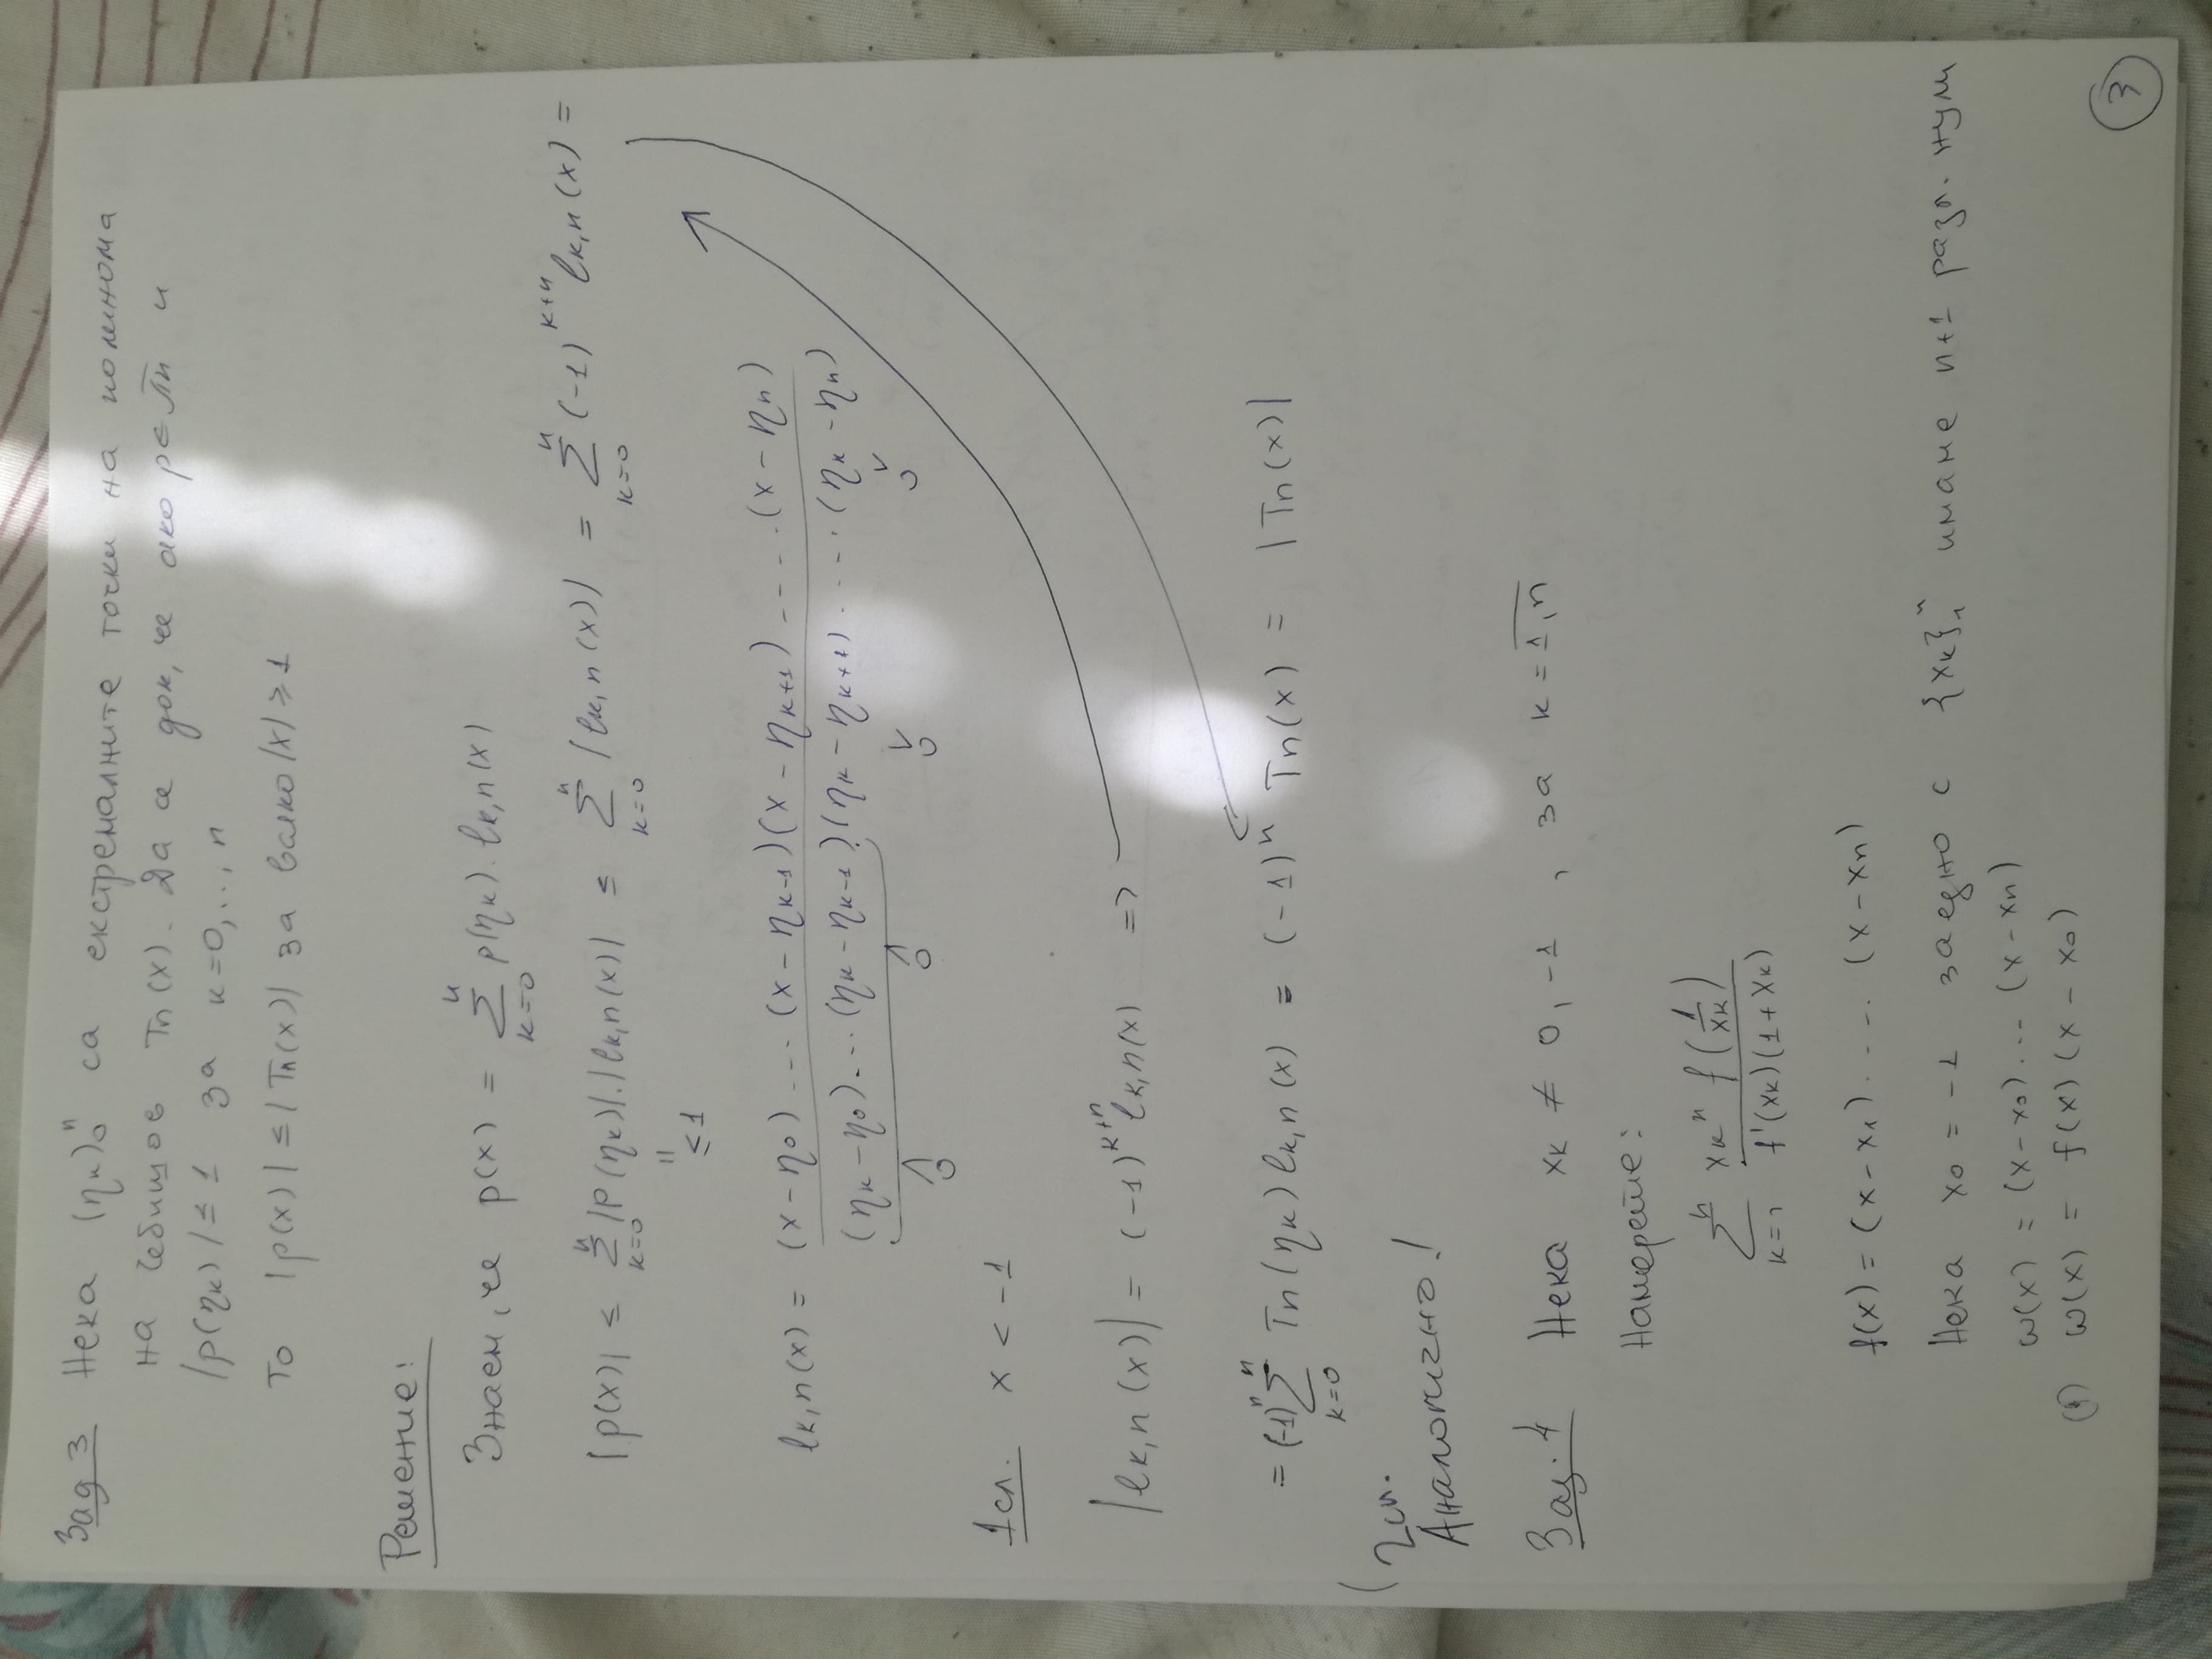 Зад 3 Нека (ηк)₀ⁿ са екстремалните точки на полинома
на Чебишов Tn(x). Да се док, че ако p∈πn и
|p(ηк)| ≤ 1 за к=0,..., n
То |p(x)| ≤ |Tn(x)| за всяко |x| ≥ 1
Решение:
Знаем, че p(x) = Σ_{к=0}^{n} p(ηк). lк,n(x)
|p(x)| ≤ Σ_{к=0}^{n} |P(ηк)|.|lк,n(x)| ≤ Σ_{к=0}^{n} |lк,n(x)| = Σ_{к=0}^{n} (-1)^{к+n} lк,n(x) =
|| ≤1
lк,n(x) = (x-η₀)...(x-ηк-1)(x-ηк+1).....(x-ηn) / (ηк-η₀)...(ηк-ηк-1).(ηк-ηк+1).....(ηк-ηn)
∧ 0 ∧ 0 ∨ 0 ∨ 0
1сл. x < -1
|lк,n(x)| = (-1)^{к+n} lк,n(x) =>
= (-1)ⁿ Σ_{к=0}^{n} Tn(ηк) lк,n(x) = (-1)ⁿ Tn(x) = |Tn(x)|
2сл.
Аналогично!
Зад. 4 Нека xк ≠ 0, -1 , за к = 1,n
Намерете:
Σ_{к=1}^{n} xкⁿ f(1/xк) / f'(xк)(1+xк)
f(x) = (x-x₁)..... (x-xn)
Нека x₀ = -1 заедно с {xк}₁ⁿ имаме n+1 разл. нули
ω(x) = (x-x₀)... (x-xn)
(1) ω(x) = f(x)(x-x₀)
3